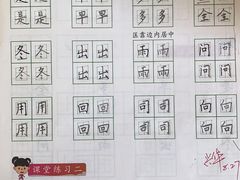 是 是 早 早 多 多 全 全
是 是 早 早 多 多 全 全
靠边内居中
冬 冬 出 出 雨 雨 问 问
冬 冬 出 出 雨 雨 问 问
用 用 回 回 司 司 向 向
用 用 回 回 司 司 向 向
课堂练习二